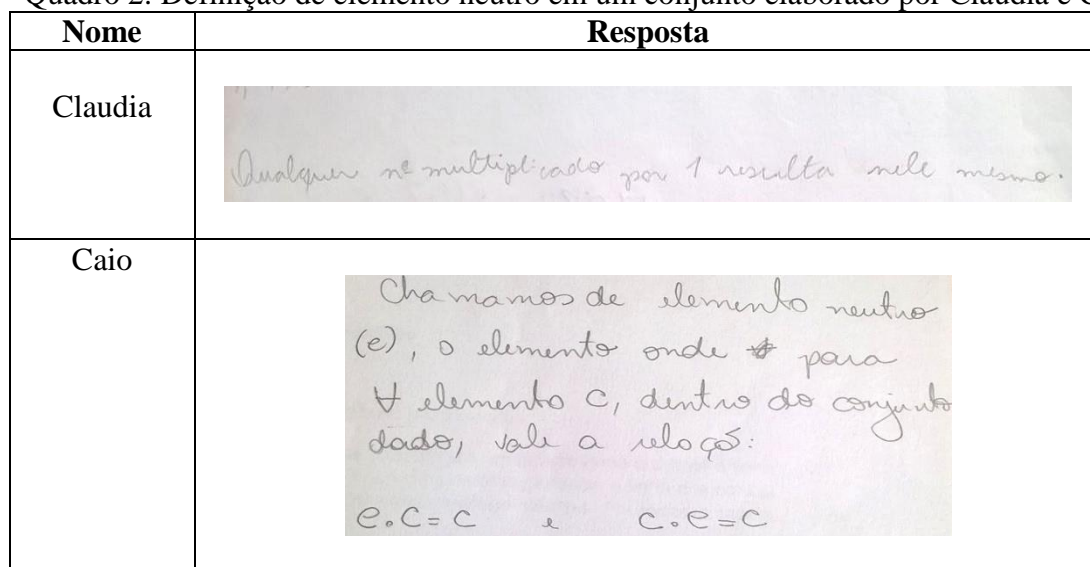 Quadro 2: Definição de elemento neutro em um conjunto elaborado por Claudia e
Nome Resposta
Claudia
Qualquer nº multiplicado por 1 resulta nele mesmo.
Caio
Chamamos de elemento neutro
(e), o elemento onde para
∀ elemento c, dentro do conjunto
dado, vale a
e.c=c e c.e=c